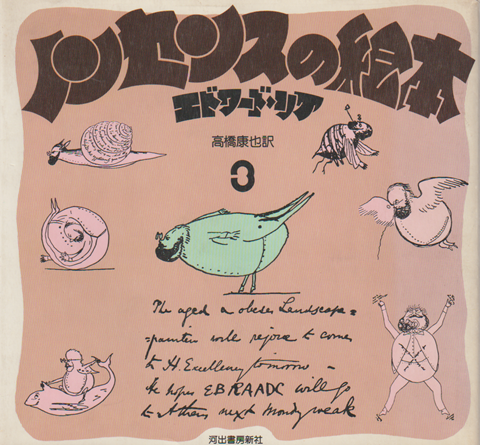 ノンセンスの絵本
エドワード・リア
高橋康也訳
3
The aged & obese Landscape=
=painter will rejoice to come
to H. Excellency tomorrow
he hopes EBRAADC will go
to Athens next Mondy weak
河出書房新社